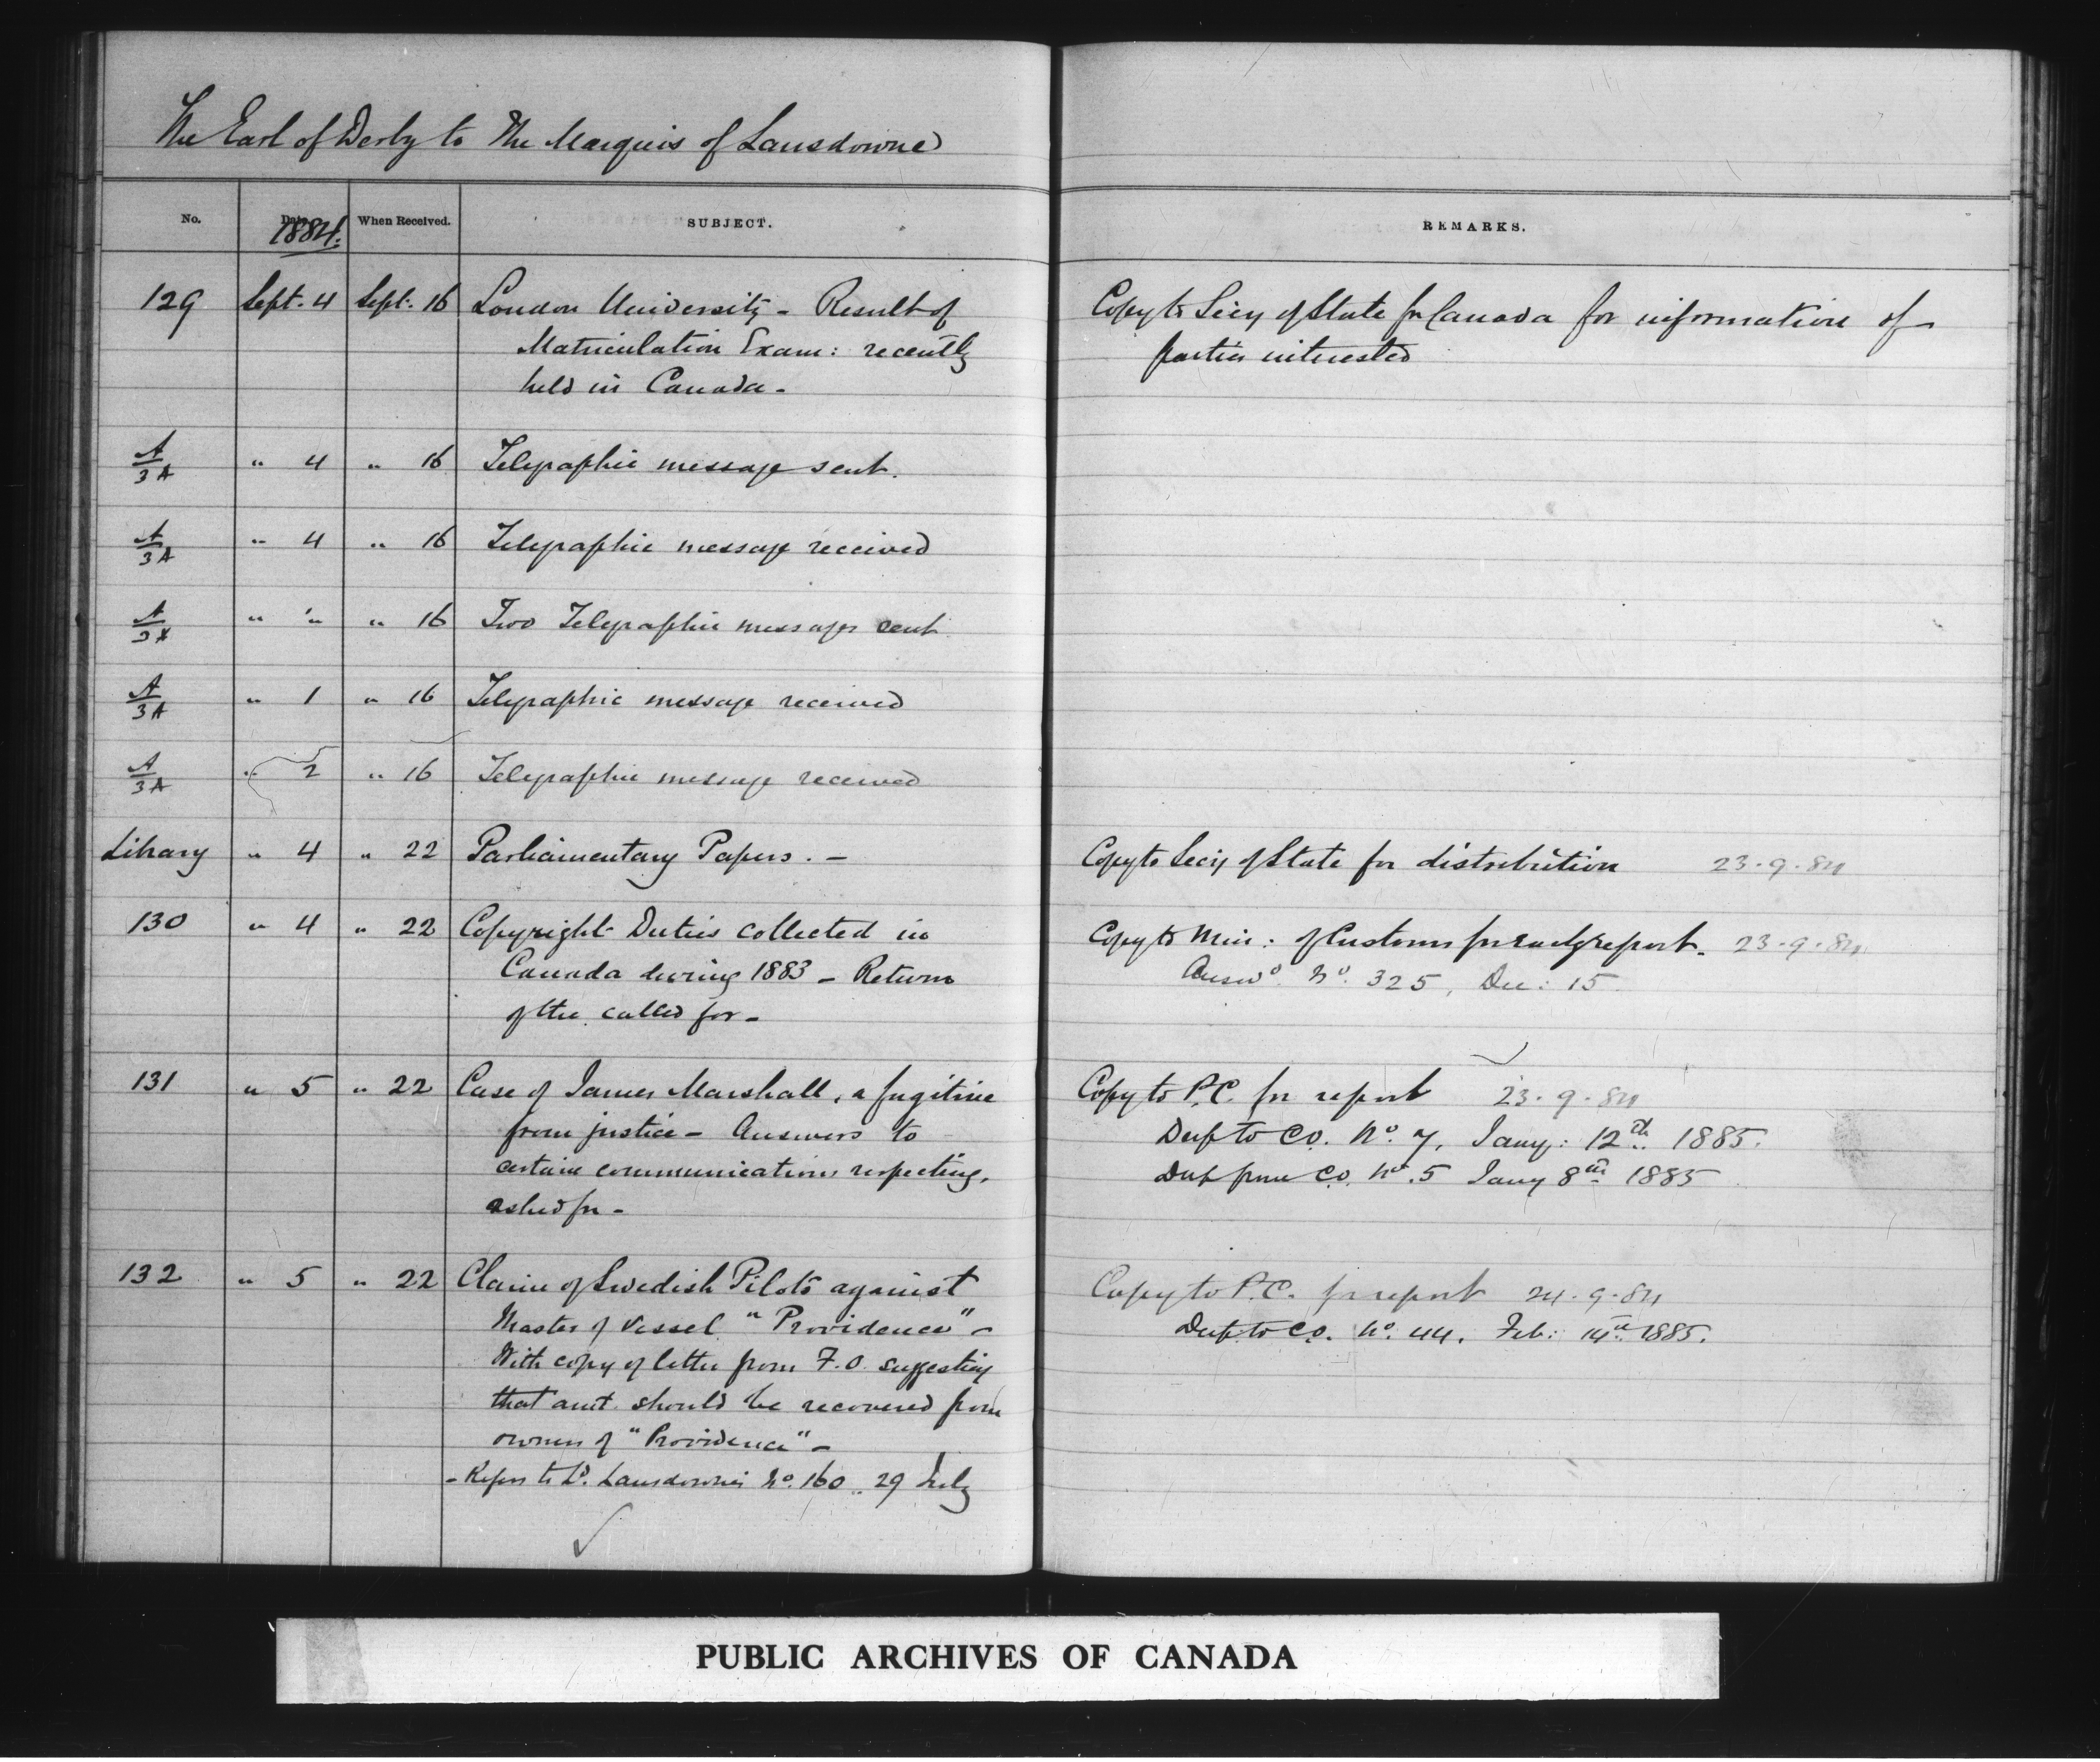 The Earl of Derby to The Marquis of Lansdowne
No. Date 1884. When Received. SUBJECT. REMARKS.
129 Sept. 4 Sept. 16 London University - Result of
Matriculation Exam: recently
held in Canada -
Copy to Secy of State for Canada for information of
parties interested
A/3A " 4 " 16 Telegraphic message sent.
A/3A " 4 " 16 Telegraphic message received
A/3A " " " 16 Two Telegraphic messages sent
A/3A " 1 " 16 Telegraphic message received
A/3A " 2 " 16 Telegraphic message received
Library " 4 " 22 Parliamentary Papers. -
Copy to Secy of State for distribution 23.9.84
130 " 4 " 22 Copyright Duties collected in
Canada during 1883 - Return
of the called for -
Copy to Min: of Customs for early report. 23.9.84
Answd. No. 325, Dec: 15
131 " 5 " 22 Case of James Marshall, a fugitive
from justice - Answers to
certain communications respecting,
asked for -
Copy to P.C. for report 23.9.84
Desp to C.O. No. 7, Jany: 12th 1885.
Desp from C.O. No. 5 Jany 8th 1885
132 " 5 " 22 Claim of Swedish Pilots against
Master of Vessel "Providence" -
With copy of letter from F.O. suggesting
that amt. should be recovered from
owners of "Providence" -
- Refers to Ld. Lansdowne's No. 160 .. 29 July
Copy to P.C. for report 24.9.84
Desp. to C.O. No. 44. Feb: 14th 1885.
PUBLIC ARCHIVES OF CANADA